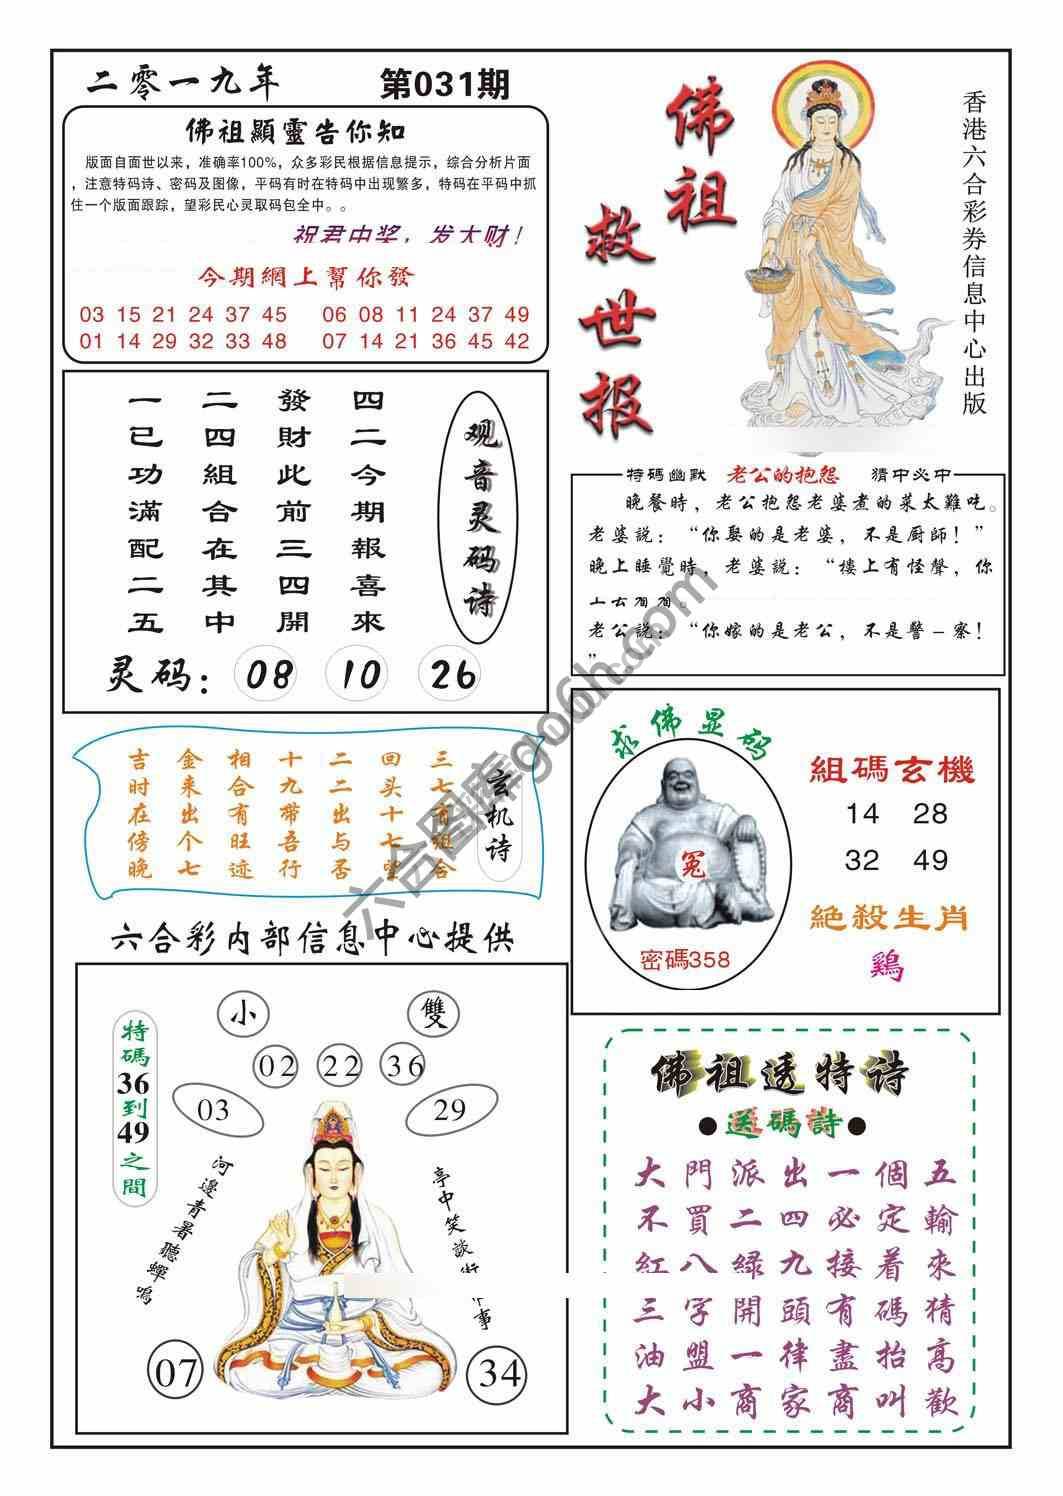 二零一九年
第031期
佛祖顯靈告你知
版面自面世以来，准确率100%，众多彩民根据信息提示，综合分析片面
，注意特码诗、密码及图像，平码有时在特码中出现繁多，特码在平码中抓
住一个版面跟踪，望彩民心灵取码包全中。。
祝君中奖，发大财！
今期網上幫你發
03 15 21 24 37 45
06 08 11 24 37 49
01 14 29 32 33 48
07 14 21 36 45 42
佛祖
救世报
香港六合彩券信息中心出版
观音灵码诗
四二今期報喜來
發財此前三四開
二四組合在其中
一已功滿配二五
灵码：
08 10 26
特碼幽默 老公的抱怨 猜中必中
晚餐時，老公抱怨老婆煮的菜太難吃。
老婆説：“你娶的是老婆，不是厨師！”
晚上睡覺時，老婆説：“樓上有怪聲，你
老公説：“你嫁的是老公，不是警－察！
”
玄机诗
三七有组合
回头十七望
二二出与否
十九带吾行
相合有旺迹
金来出个七
吉时在傍晚
求佛显码
冤
密碼358
組碼玄機
14 28
32 49
絶殺生肖
鷄
六合彩内部信息中心提供
小
雙
02 22 36
03
29
特碼36到49之間
河邊青暑聽蟬鳴
亭中笑談
事
07
34
佛祖透特诗
●送碼詩●
大門派出一個五
不買二四必定輸
紅八緑九接着來
三字開頭有碼猜
油盟一律盡抬高
大小商家商叫歡
六合图库go6h.com